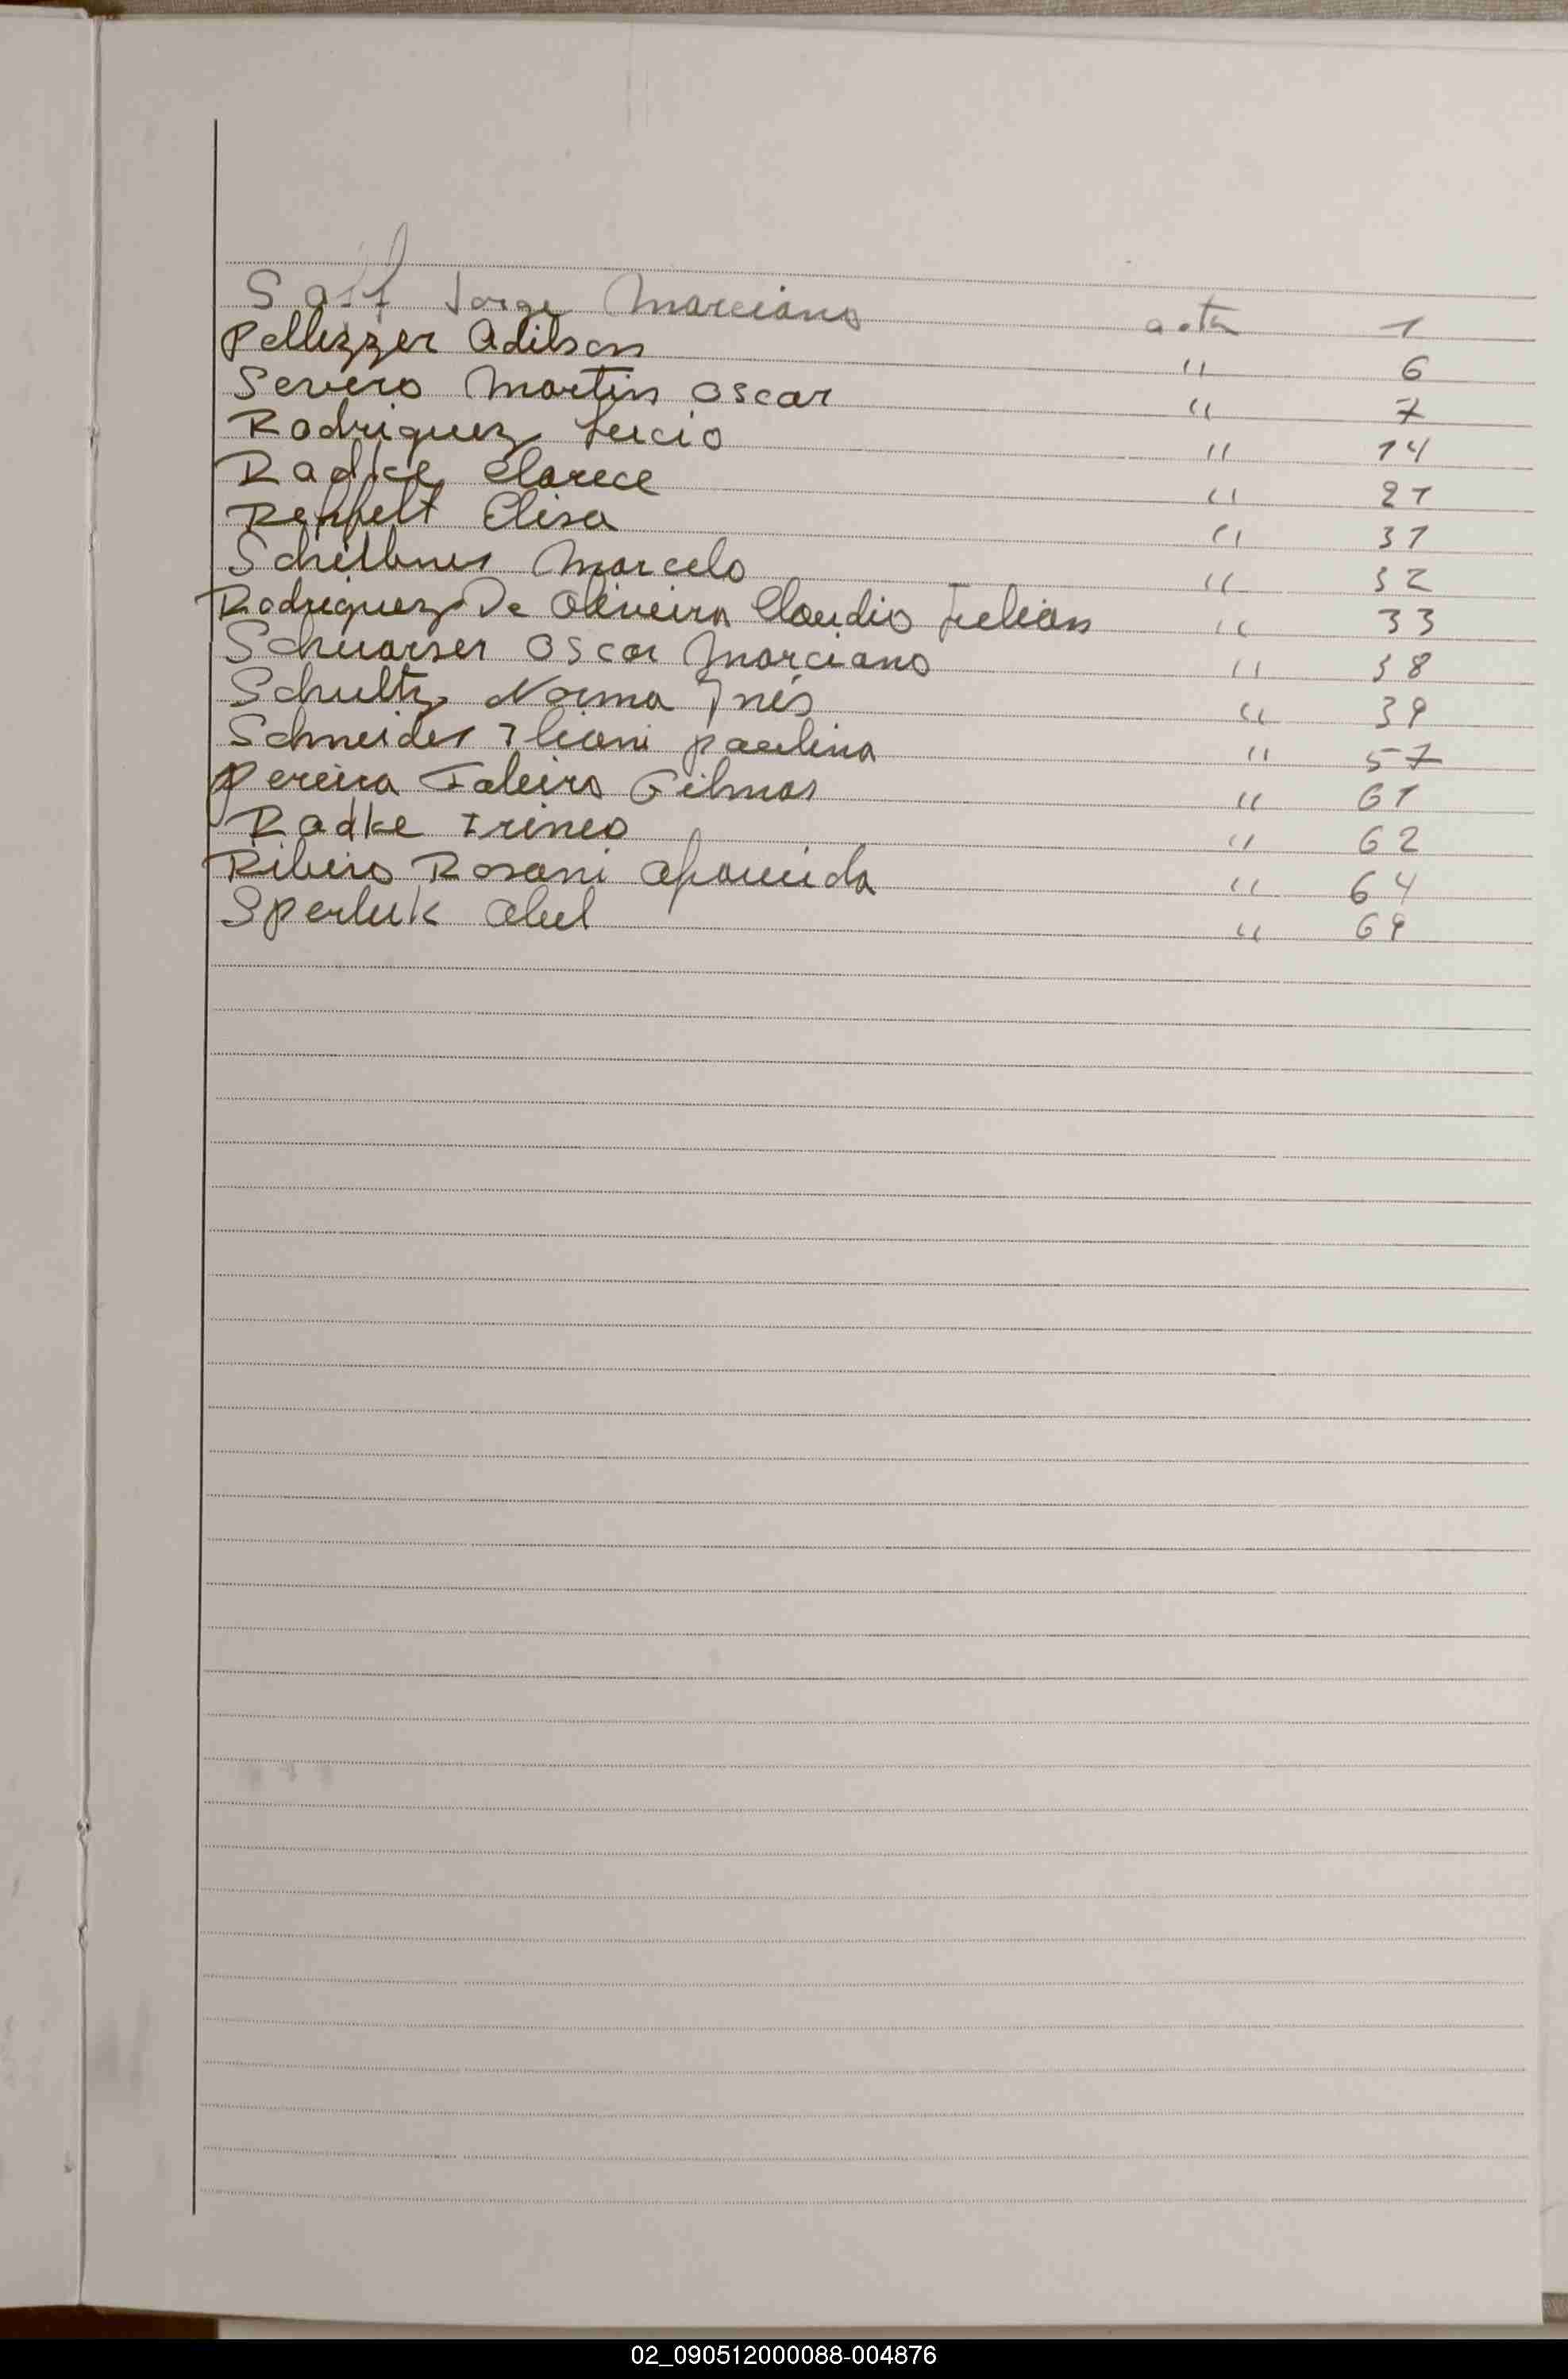 Saff Jorge Marciano acta 1
Pellizzer Adilson " 6
Severo Martin Oscar " 7
Rodriguez Lucio " 14
Radke Clarece " 21
Rehfelt Elisa " 31
Scheilbner Marcelo " 32
Rodriguez De Oliveira Claudio Julian " 33
Schuarser Oscar Marciano " 38
Schultz Norma Inés " 39
Schneider Iliani Paulina " 57
Pereira Faleiro Gilmar " 61
Radke Irineo " 62
Ribeiro Rosani Aparecida " 64
Sperluk Abel " 69
02_090512000088-004876